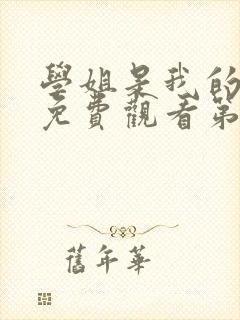 學姐是我的
免費觀看第
舊年華